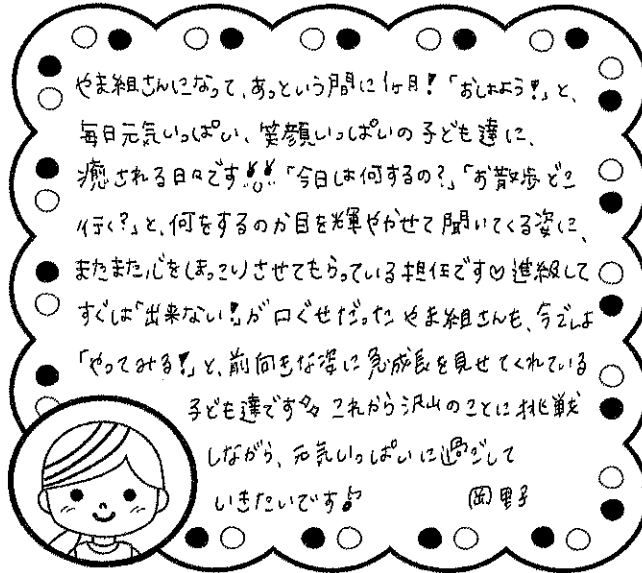 やま組さんになって、あっという間に1ヶ月!「おはよう!」と、
毎日元気いっぱい、笑顔いっぱいの子ども達に、
癒される日々です!!「今日は何するの?」「お散歩どこ
行く?」と、何をするのか目を輝やかせて聞いてくる姿に、
またまた心をほっこりさせてもらっている担任です♡ 進級して
すぐは「出来ない!」が口ぐせだった やま組さんも、今では
「やってみる!」と、前向きな姿に急成長を見せてくれている
子ども達です♪ これから沢山のことに挑戦
しながら、元気いっぱいに過ごして
いきたいです♪ 岡野